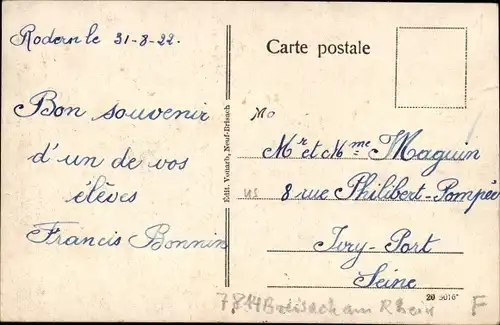 Rodern le 31-8-22.
Carte postale
Bon souvenir
d'un de vos
élèves
Francis Bonnin
Edit. Vonach, Neuf-Brisach
Mo
Mr et Mme Maguin
us
8 rue Philibert-Pompée
Ivry-Port
Seine
20 5016*
7814 Breisach am Rhein F